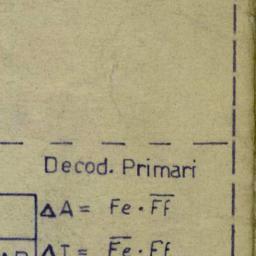 Decod. Primari
ΔA = Fe · F̅f̅
ΔT = F̅e̅ · Ff